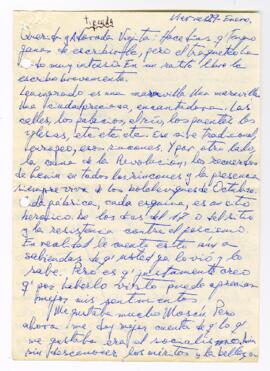 27 Enero.
Querido y adorado Viejita: Hace días q' tengo
ganas de escribirle, pero el trajín
ha sido muy intenso. En un ratito libre le
escribo brevemente.
Leningrado es una maravilla. Una maravilla
una ciudad preciosa, encantadora. Las
calles, los palacios, el río, los puentes, las
iglesias, etc etc etc. Ese aire tradicional,
europeo, esos rincones. Y por otro lado,
la cuna de la Revolución, los recuerdos
de Lenin en todos los rincones y la presencia
siempre viva de los bolcheviques de Octubre.
Cada fábrica, cada esquina, es un sitio
heroico de los días del 17 o del sitio
y la resistencia contra el fascismo.
En realidad le cuento esto aún a
sabiendas de q' usted ya lo vió y lo
sabe. Pero es q' justamente creo
q' por haberlo visto puede apreciar
mejor mis sentimientos.
Me gustaba mucho Moscú. Pero
ahora me doy mejor cuenta de q' lo q'
me gustaba era el socialismo
sin desconocer los méritos y la belleza